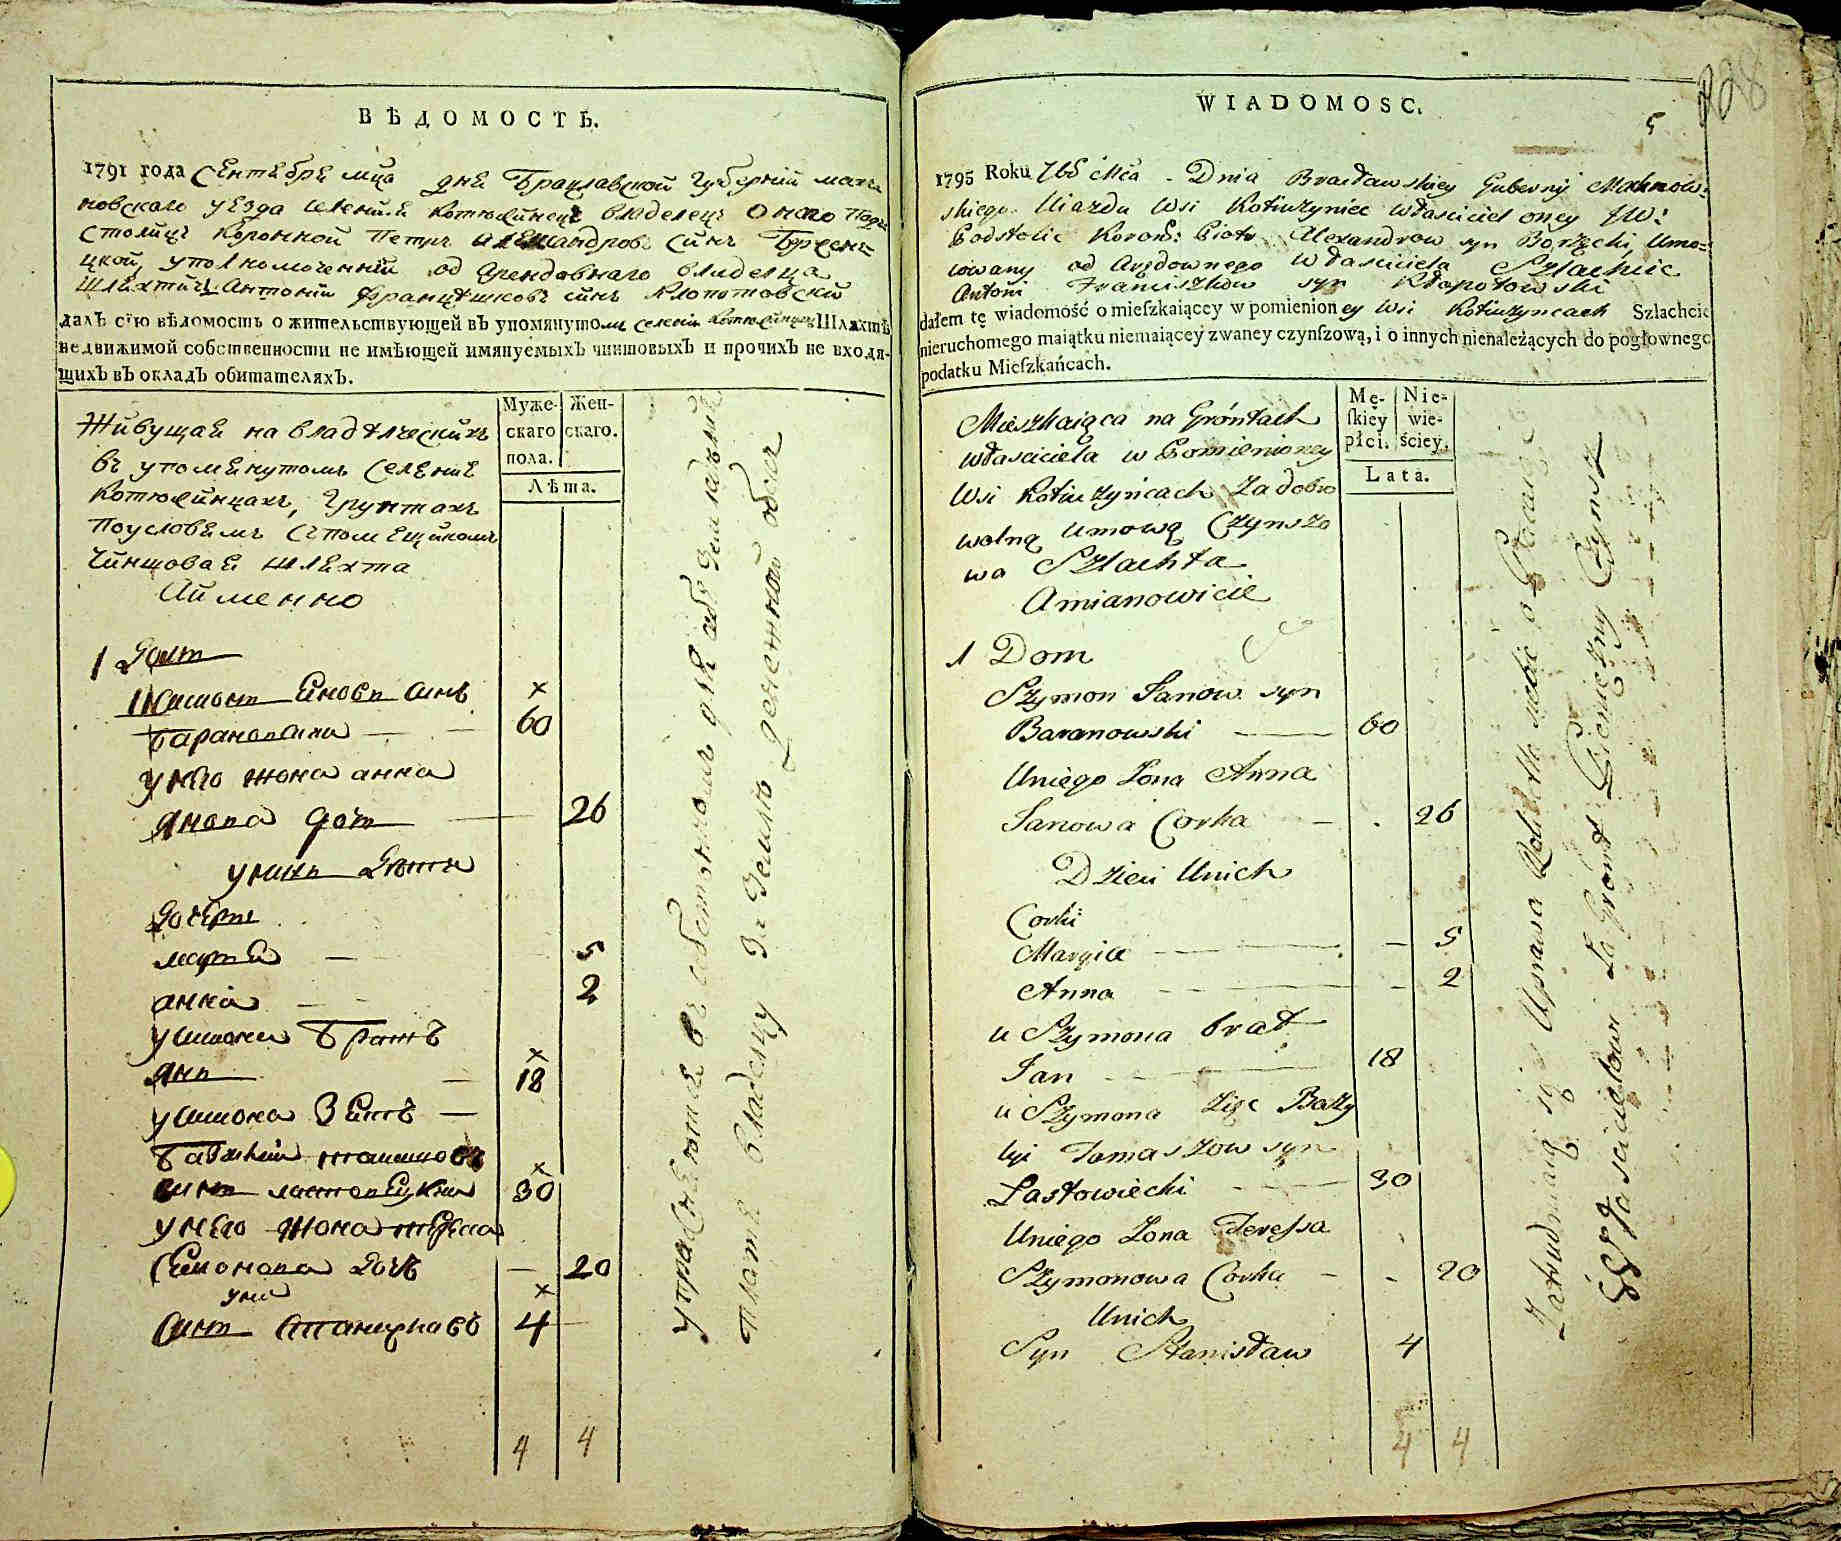 ВѢДОМОСТЬ.
1791 года Сентебре мца дня Брацлавской Губерний Мах-
новскаго уезда селений Котюжинецъ владелецъ оного Под-
столицъ Коронной Петръ Александровъ синъ Бержен-
цкой, уполномоченний од арендовнаго владелца
Шляхтичъ Антоній Францишковъ синъ Клопотовскій
далъ сїю вѣдомость о жительствующей въ упомянутомъ селеніи Котюжинцахъ Шляхтѣ
недвижимой собственности не имѣющей имянуемыхъ чиншовыхъ и прочихъ не входя-
щихъ въ окладъ обитателяхъ.
Муже- Жен-
скаго скаго.
пола.
Лѣта.
Живущая на владѣлческихъ
въ упомянутомъ Селение
Котюжинцахъ, Грунтахъ
поусловиемъ Спомещикомъ
Чиншовая шляхта
Айменно
1 Домъ
Шимонъ Яновъ синъ
Барановский 60
у него жона анна
Янова дочь 26
у нихъ Дети
Дочери
Марія 5
анна 2
у шимона Братъ
Янъ 18
у шимона Зять
Базилий томашовъ
синъ Ластовецкий 30
у него жона тереса
Симонова дочь 20
у них
синъ Станиславъ 4
4 4
упражняются в работахъ
платя владелцу за землю денежной
WIADOMOSC.
228
5
1795 Roku 7bѣ Mca Dnia Bracławskiey Gubernij Machnow-
skiego Uiazdu Wsi Kotiużyniec właściciel oney JW:
Podstolic Koron: Piotr Alexandrow syn Borzęcki, Umo-
cowany od Arędownego właściciela Szlachcic
Antoni Franciszkow syn Kłopotowski
dałem tę wiadomość o mieſzkaiąccy w pomienioney Wsi Kotiużyncach Szlachcie
nieruchomego maiątku niemaiącey zwaney czynſzową, i o innych nienależących do pogłownego
podatku Mieſzkańcach.
Mę- Nie-
ſkiey wie-
płci. ściey.
Lata.
Mieszkaiąca na Gróntach
właściciela w Pomienioney
Wsi Kotiużyńcach Za dobro
wolną Umową Czynszo
wa Szlachta
Amianowicie
1 Dom
Szymon Janow syn
Baranowski 60
Uniego Zona Anna
Janowa Corka 26
Dzieci Unich
Corki
Maryia 5
Anna 2
u Szymona brat
Jan 18
u Szymona Zięc Bazy
lyi Tomaszow syn
Łastowiecki 30
Uniego Zona Teressa
Szymonowa Corka 20
Unich
Syn Stanisław 4
4 4
Zatrudniaią się Uprawą Roli
właścicielowi Za Grónt Pieniężny Czynsz